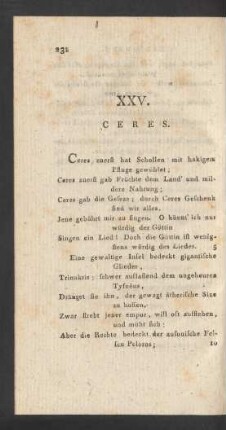 232
XXV.
CERES.
Ceres zuerst hat Schollen mit hakigem
Pfluge gewühlet;
Ceres zuerst gab Früchte dem Land' und mil-
dere Nahrung;
Ceres gab die Gesetze; durch Ceres Geschenk
sind wir alles.
Jene gebührt mir zu singen. O könnt' ich nur
würdig der Göttin
Singen ein Lied! Doch die Göttin ist wenig-
stens würdig des Liedes. 5
Eine gewaltige Insel bedeckt gigantische
Glieder,
Trinakris: schwer auflastend dem ungeheuren
Tyfoeus,
Dränget sie ihn, der gewagt ätherische Size
zu hoffen.
Zwar strebt jener empor, will oft aufstehen,
und müht sich:
Aber die Rechte bedeckt der ausonische Fel-
sen Peloros; 10